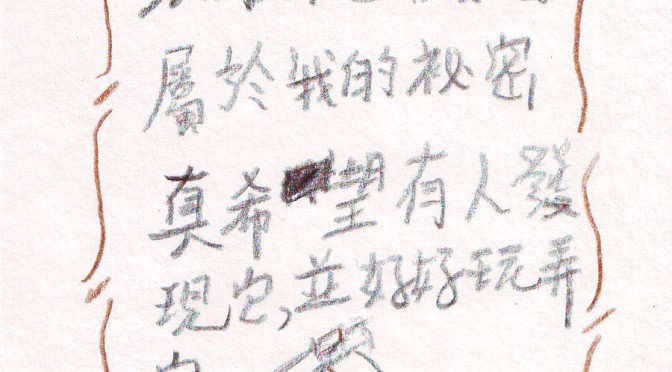 屬於我的祕密
真希望有人發
現它,並好好玩弄